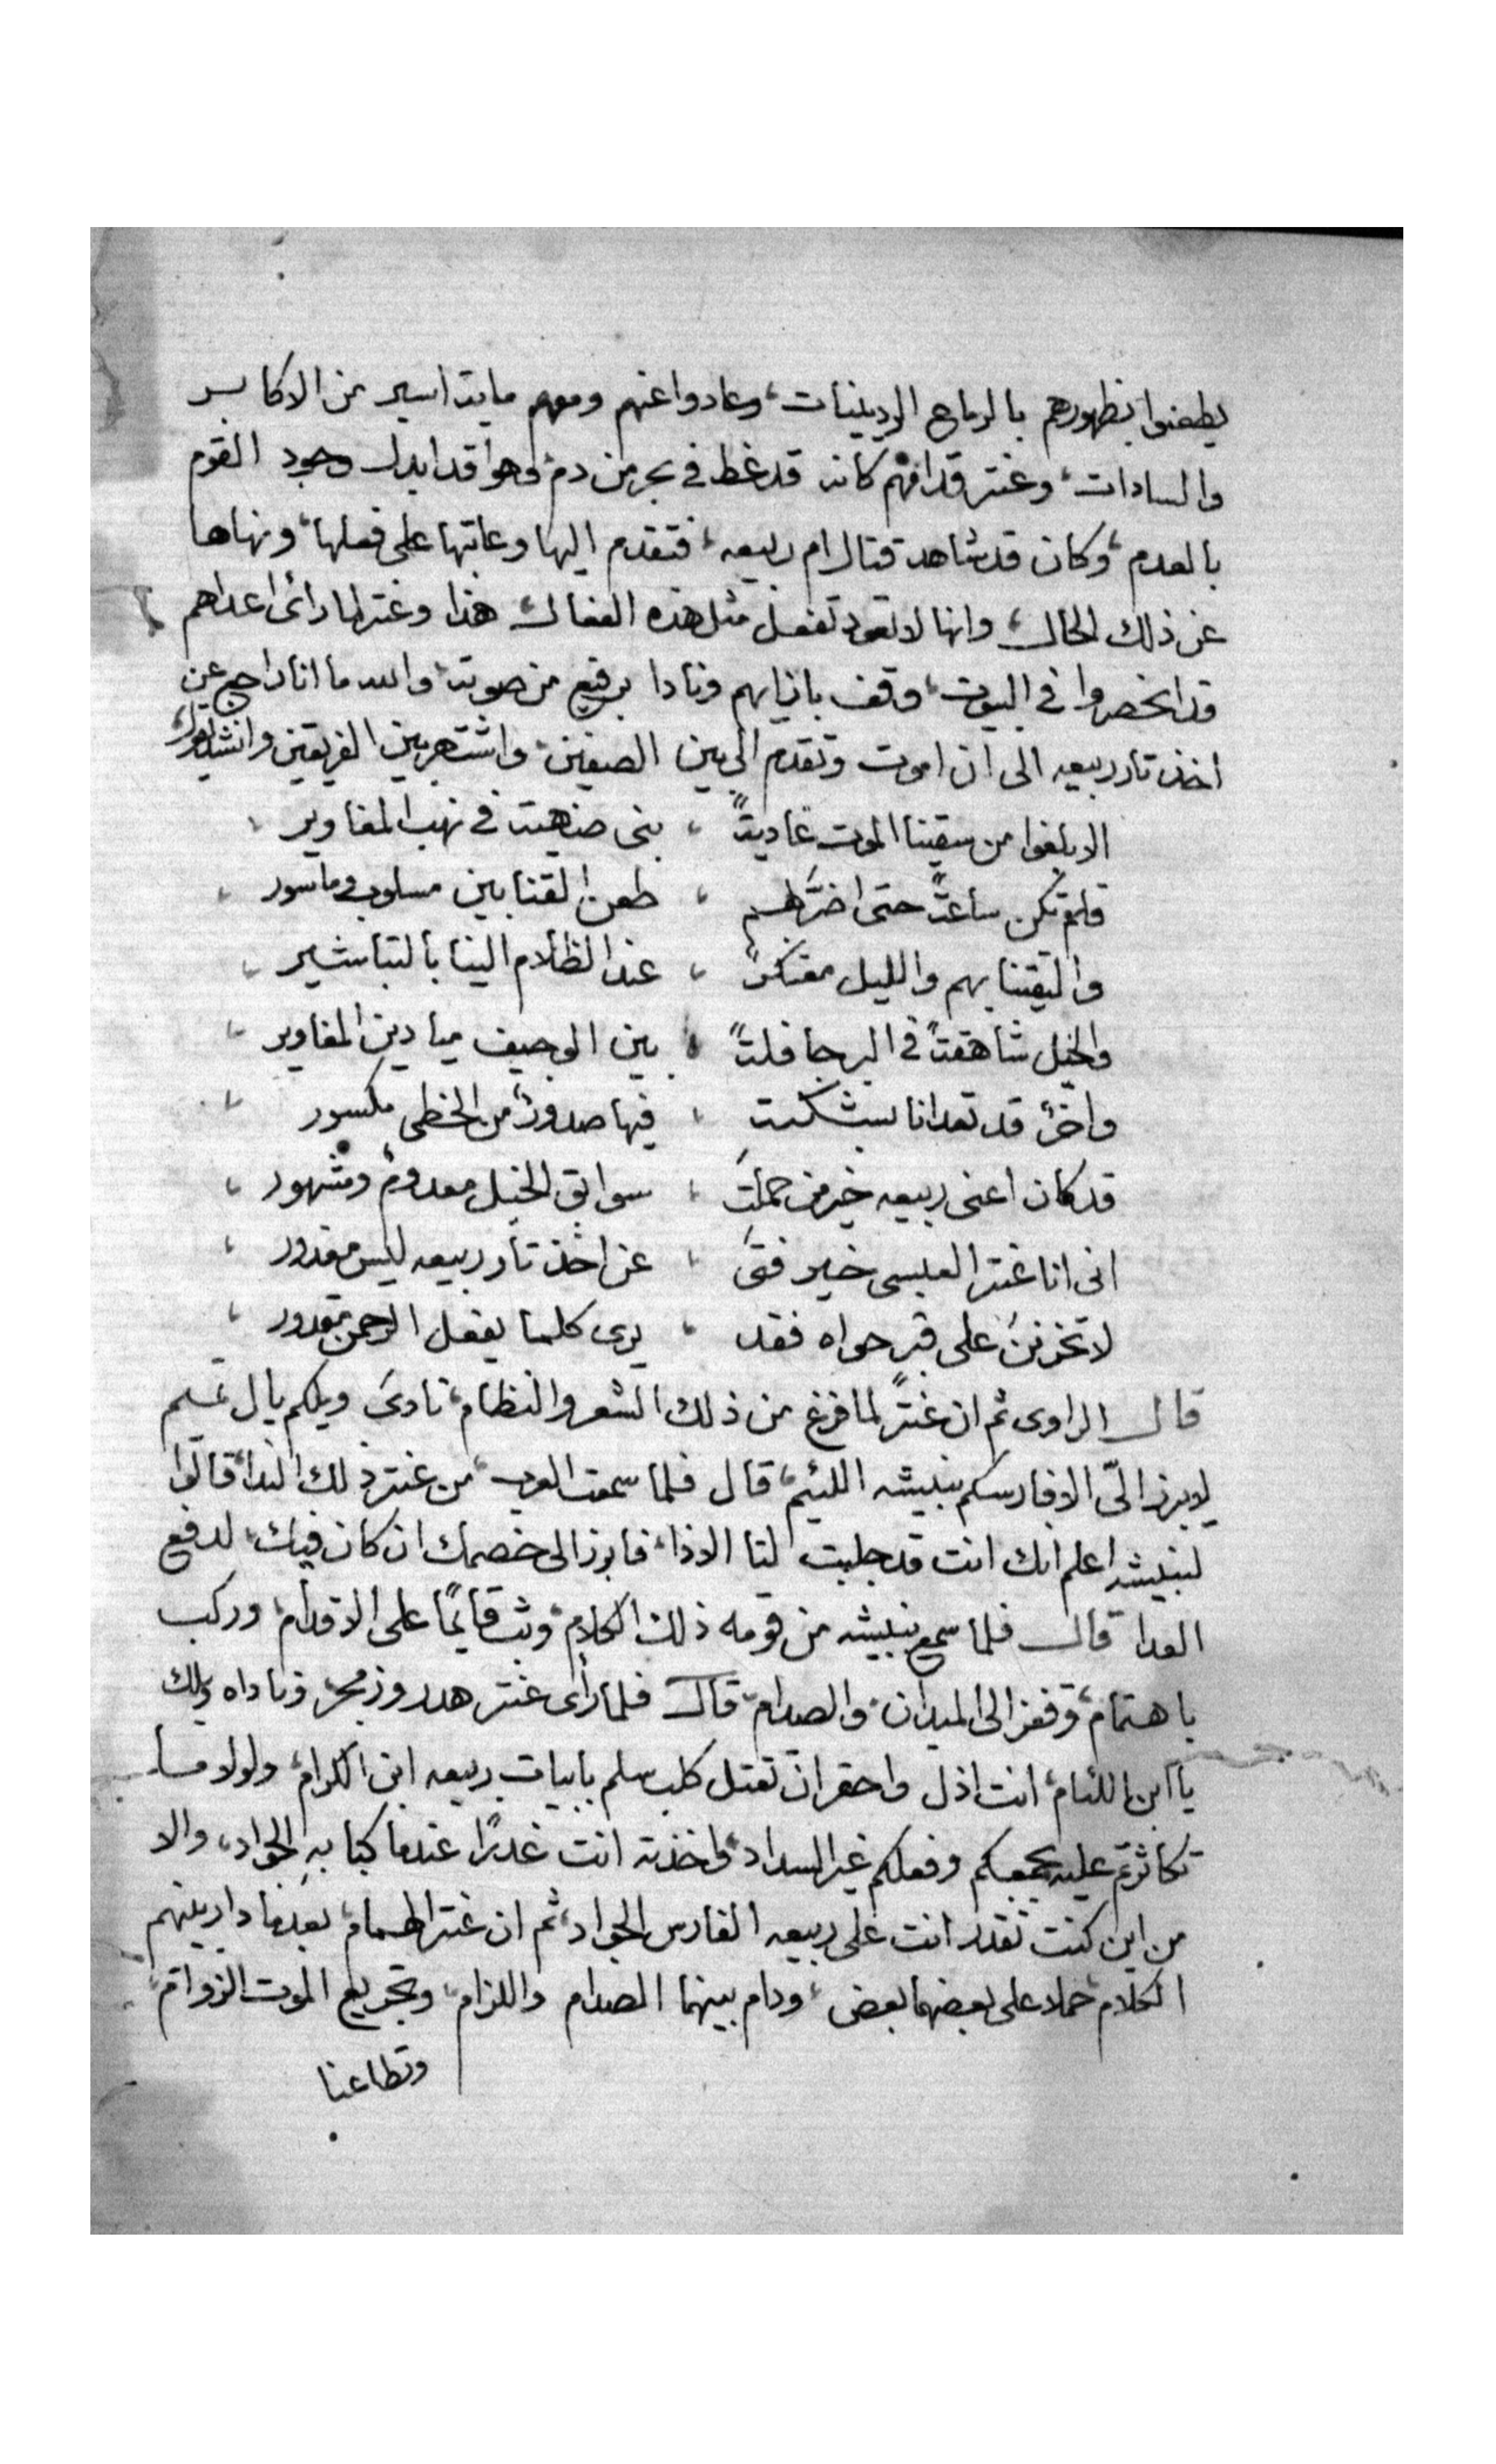 يطعنوا بظهورهم بالرماح الردينيات، وعادوا عنهم ومعهم مايته اسير من الاكابر
والسادات، وعنتر قدامهم كانه قد غطا في بحر من دم، وهوا قد ابدل وجود القوم
بالعدم، وكان قد شاهد قتال ام ربيعه، فتقدم اليها وعاتبها على فعلها، ونهاها
عن ذلك الحال، وانها لا تعود تفعل مثل هذه الفعال، هذا وعنتر لما رائى اعداهم
قد انحصروا في البيوت، وقف بازايهم ونادا برفيع من صوته، والله ما انا راجع عن
اخذ تار ربيعه الى ان اموت وتقدم الى بين الصفين، واشتهر بين الفريقين وانشد يقول،
الا بلغوا من سقينا الموت غاديةً ، بنى في نهب المغاوير ،
فلم تكن ساعتًا حتى اضرّ بهم ، طعن القنا بين مسلوب وماسور ،
والتقينا بهم والليل معتكرً ، عند الظلام الينا بالتباشير ،
والخيل شاهقتًا في البر جافلتًا ، بين الوجيف ميادين المغاوير ،
واخرً قد تعدانا ، فيها صدورً من الخطى مكسور ،
قد كان اعنى ربيعه خير من حملت ، سوابق الخيل معدوم ومشهور ،
انى انا عنتر العبسى خير فتى ، عن اخذ تار ربيعه ليس معدور ،
لا تحزنن على قبر حواه فقد ، يرى كلما يفعل الرحمن بمقدور ،
قال الراوى ثم ان عنترً لما فرغ من ذلك الشعر والنظام، نادى ويلكم يال سليم
لا يبرز الىّ الا فارسكم نبيشه اللئيم، قال فلما سمعت العرب، من عنتر ذلك الندا، قالوا
لنبيشه اعلم انك انت قد جلبت لنا الاذا، فابرز الى خصمك ان كان فيك، لدفع
العدا قال فلما سمع نبيشه من قومه ذلك الكلام، وثب قايمًا على الاقدام، وركب
باهتمام، وقفز الى الميدان، والصدام، قال فلما رأى عنتر هدر وزمجر، وناداه ويلك
يا ابن اللئام، انت اذل واحقر ان تقتل كلب سلم بابيات ربيعه ابن الكرام، ولولا ما
تكاثرتم عليه بجمعكم وفعلكم غير السداد، واخذته انت غدرًا عندما كبا به الجواد، والا
من اين كنت تقدر انت على ربيعه الفارس الجواد، ثم ان عنتر الهمام، بعدما دار بينهم
الكلام، حملا على بعضهما بعض، ودام بينهما الصدام واللزام، وتجريع الموت الزوام،
وتطاعنا